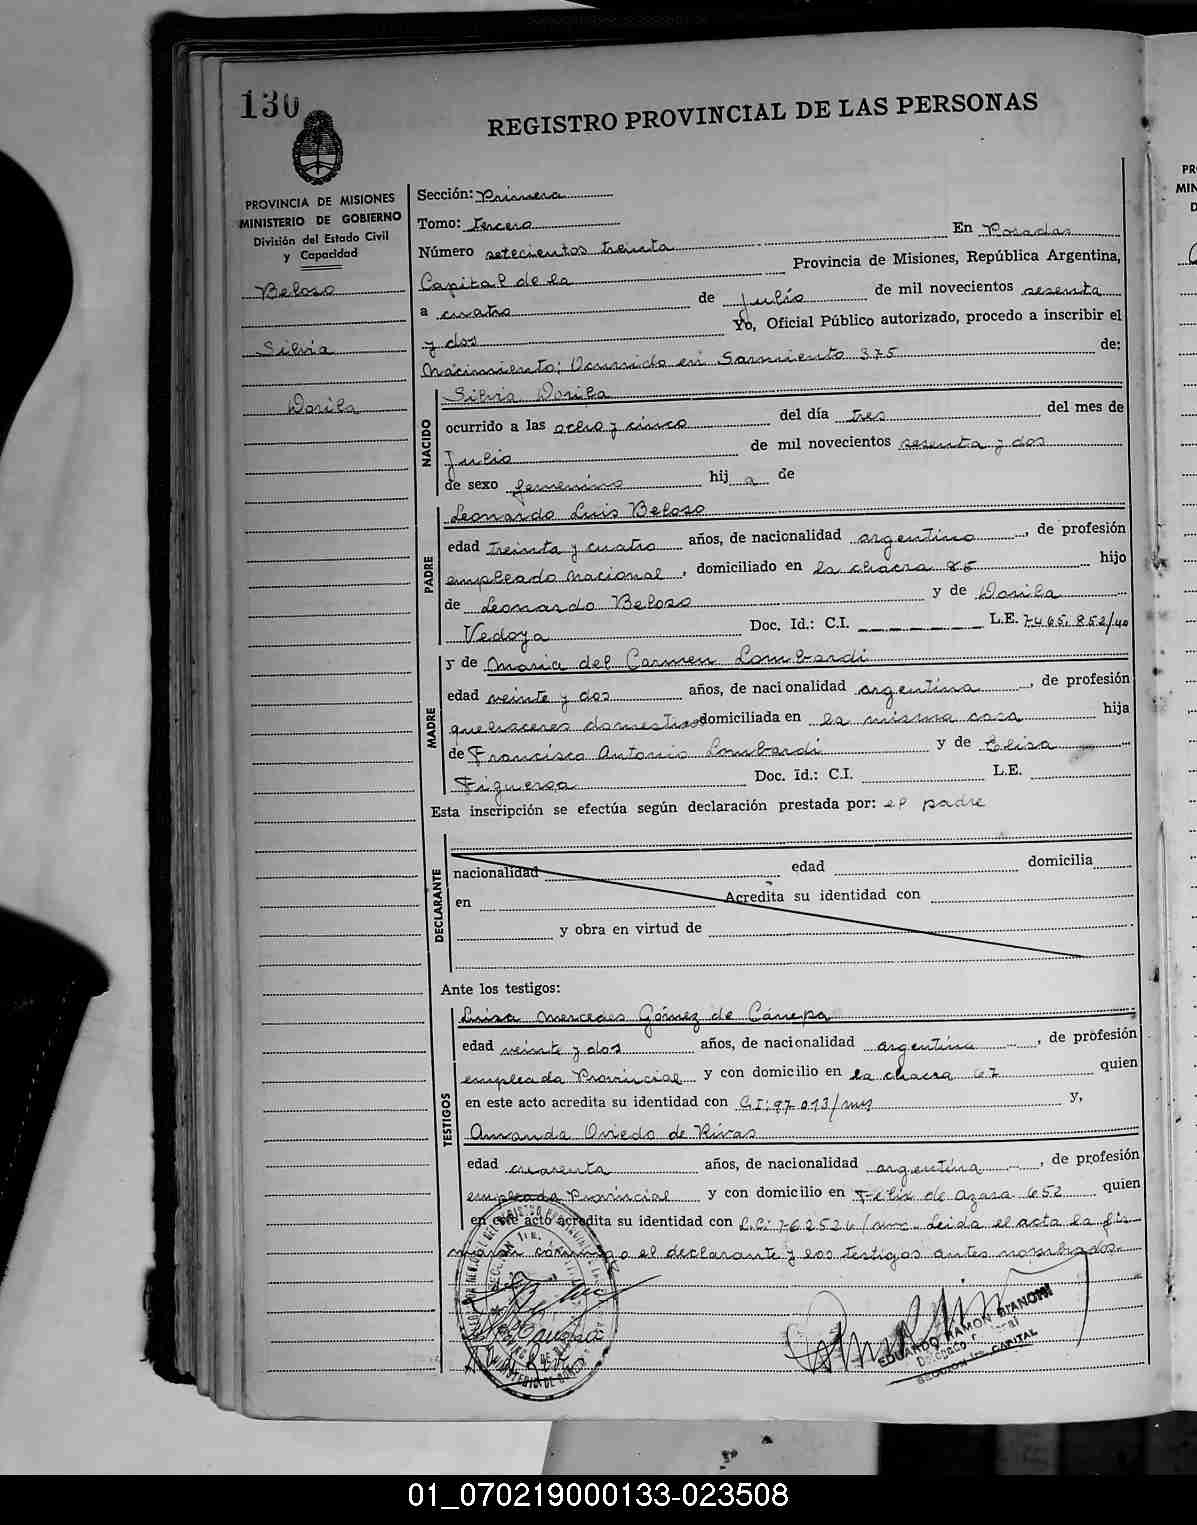 130
REGISTRO PROVINCIAL DE LAS PERSONAS
PROVINCIA DE MISIONES
MINISTERIO DE GOBIERNO
División del Estado Civil
y Capacidad
Beloso
Silvia
Dorila
Sección: Primera
Tomo: tercero
Número setecientos treinta En Posadas
Capital de la Provincia de Misiones, República Argentina,
a cuatro de julio de mil novecientos sesenta
y dos Yo, Oficial Público autorizado, procedo a inscribir el
Nacimiento: Ocurrido en Sarmiento 375 de:
NACIDO
Silvia Dorila
ocurrido a las ocho y cinco del día tres del mes de
Julio de mil novecientos sesenta y dos
de sexo femenino hij a de
PADRE
Leonardo Luis Beloso
edad treinta y cuatro años, de nacionalidad argentino, de profesión
empleado nacional, domiciliado en la chacra 85 hijo
de Leonardo Beloso y de Dorila
Vedoya Doc. Id.: C.I. L.E. 7465.852/40
MADRE
y de Maria del Carmen Lombardi
edad veinte y dos años, de nacionalidad argentina, de profesión
quehaceres domesticos domiciliada en la misma casa hija
de Francisco Antonio Lombardi y de Elisa
Figueroa Doc. Id.: C.I. L.E.
Esta inscripción se efectúa según declaración prestada por: el padre
DECLARANTE
nacionalidad edad domicilia
en Acredita su identidad con
y obra en virtud de
Ante los testigos:
TESTIGOS
Luisa Mercedes Gómez de Cánepa
edad veinte y dos años, de nacionalidad argentina, de profesión
empleada Provincial y con domicilio en la chacra 67 quien
en este acto acredita su identidad con C.I: 97.013/mns y,
Amanda Oviedo de Rivas
edad cuarenta años, de nacionalidad argentina, de profesión
empleada Provincial y con domicilio en Felix de Azara 652 quien
en este acto acredita su identidad con Leida el acta la fir-
maron conmigo el declarante y los testigos antes nombrados.
EDUARDO RAMON BIANCHI
SECCION 1ra. CAPITAL
01_070219000133-023508